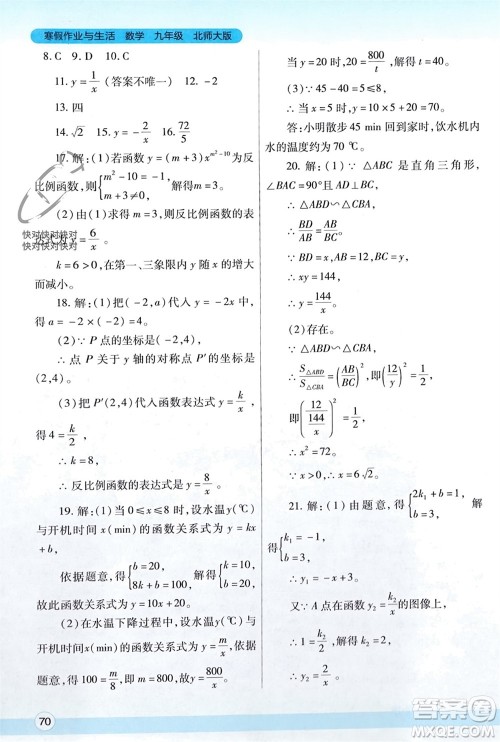 寒假作业与生活 数学 九年级 北师大版
8. C 9. D 10. C
11. y=1/x (答案不唯一) 12. -2
13. 四
14. √2 15. 4 16. 72/5
17. 解:(1)若函数 y=(m+3)x^(m²-10) 为反
比例函数,则{m²-10=-1, m+3≠0,
(2)由(1)求得 m=3,故反比例函数的表
达式为 y=6/x.
k=6>0,在第一、三象限内 y 随 x 的增大
而减小.
18. 解:(1)把(-2,a)代入 y=-2x 中,得
a=-2×(-2)=4.
(2)∵ 点 P 的坐标是(-2,4),
∴ 点 P 关于 y 轴的对称点 P′的坐标是
(2,4).
(3)把 P′(2,4)代入函数表达式 y=k/x,
得 4=k/2,
∴ k=8.
∴ 反比例函数的表达式是 y=8/x.
19. 解:(1)当 0≤x≤8 时,设水温 y(℃)
与开机时间 x(min)的函数关系式为 y=
kx+b,
依据题意,得{b=20, 8k+b=100, 解得{k=10, b=20,
故此函数关系式为 y=10x+20.
(2)在水温下降过程中,设水温 y(℃)与
开机时间 x(min)的函数关系式为 y=m/x,依据
题意,得 100=m/8,解得 m=800,∴ y=800/x.
70
当 y=20 时,20=800/t,解得 t=40.
(3)∵ 45-40=5≤8,
∴ 当 x=5 时,y=10×5+20=70.
答:小明散步 45 min 回到家时,饮水机内
水的温度约为 70 ℃.
20. 解:(1)∵ △ABC 是直角三角形,
∠BAC=90°,AD⊥BC,
∴ △ABD∽△CBA,
∴ BD/AB=AB/BC.
∵ BD=x,BC=y,AB=12,
∴ xy=144,
∴ y=144/x.
(2)存在.
∵ △ABD∽△CBA,
∴ S△ABD/S△CBA=(AB/BC)²,即(12/y)²=1/4,
即(12/(144/x))²=1/4,
∴ x²=36.
∵ x>0,∴ x=6√2.
21. 解:(1)由题意,得{2k₁+b=1, b=-3,
解得{k₁=2, b=-3.
∴ y₁=2x-3.
又∵ A 点在函数 y₂=k₂/x 的图像上,
∴ 1=k₂/2,解得 k₂=2,
∴ y₂=2/x.
快对快对快对
快对快对快对
答案圈
MXQE.COM